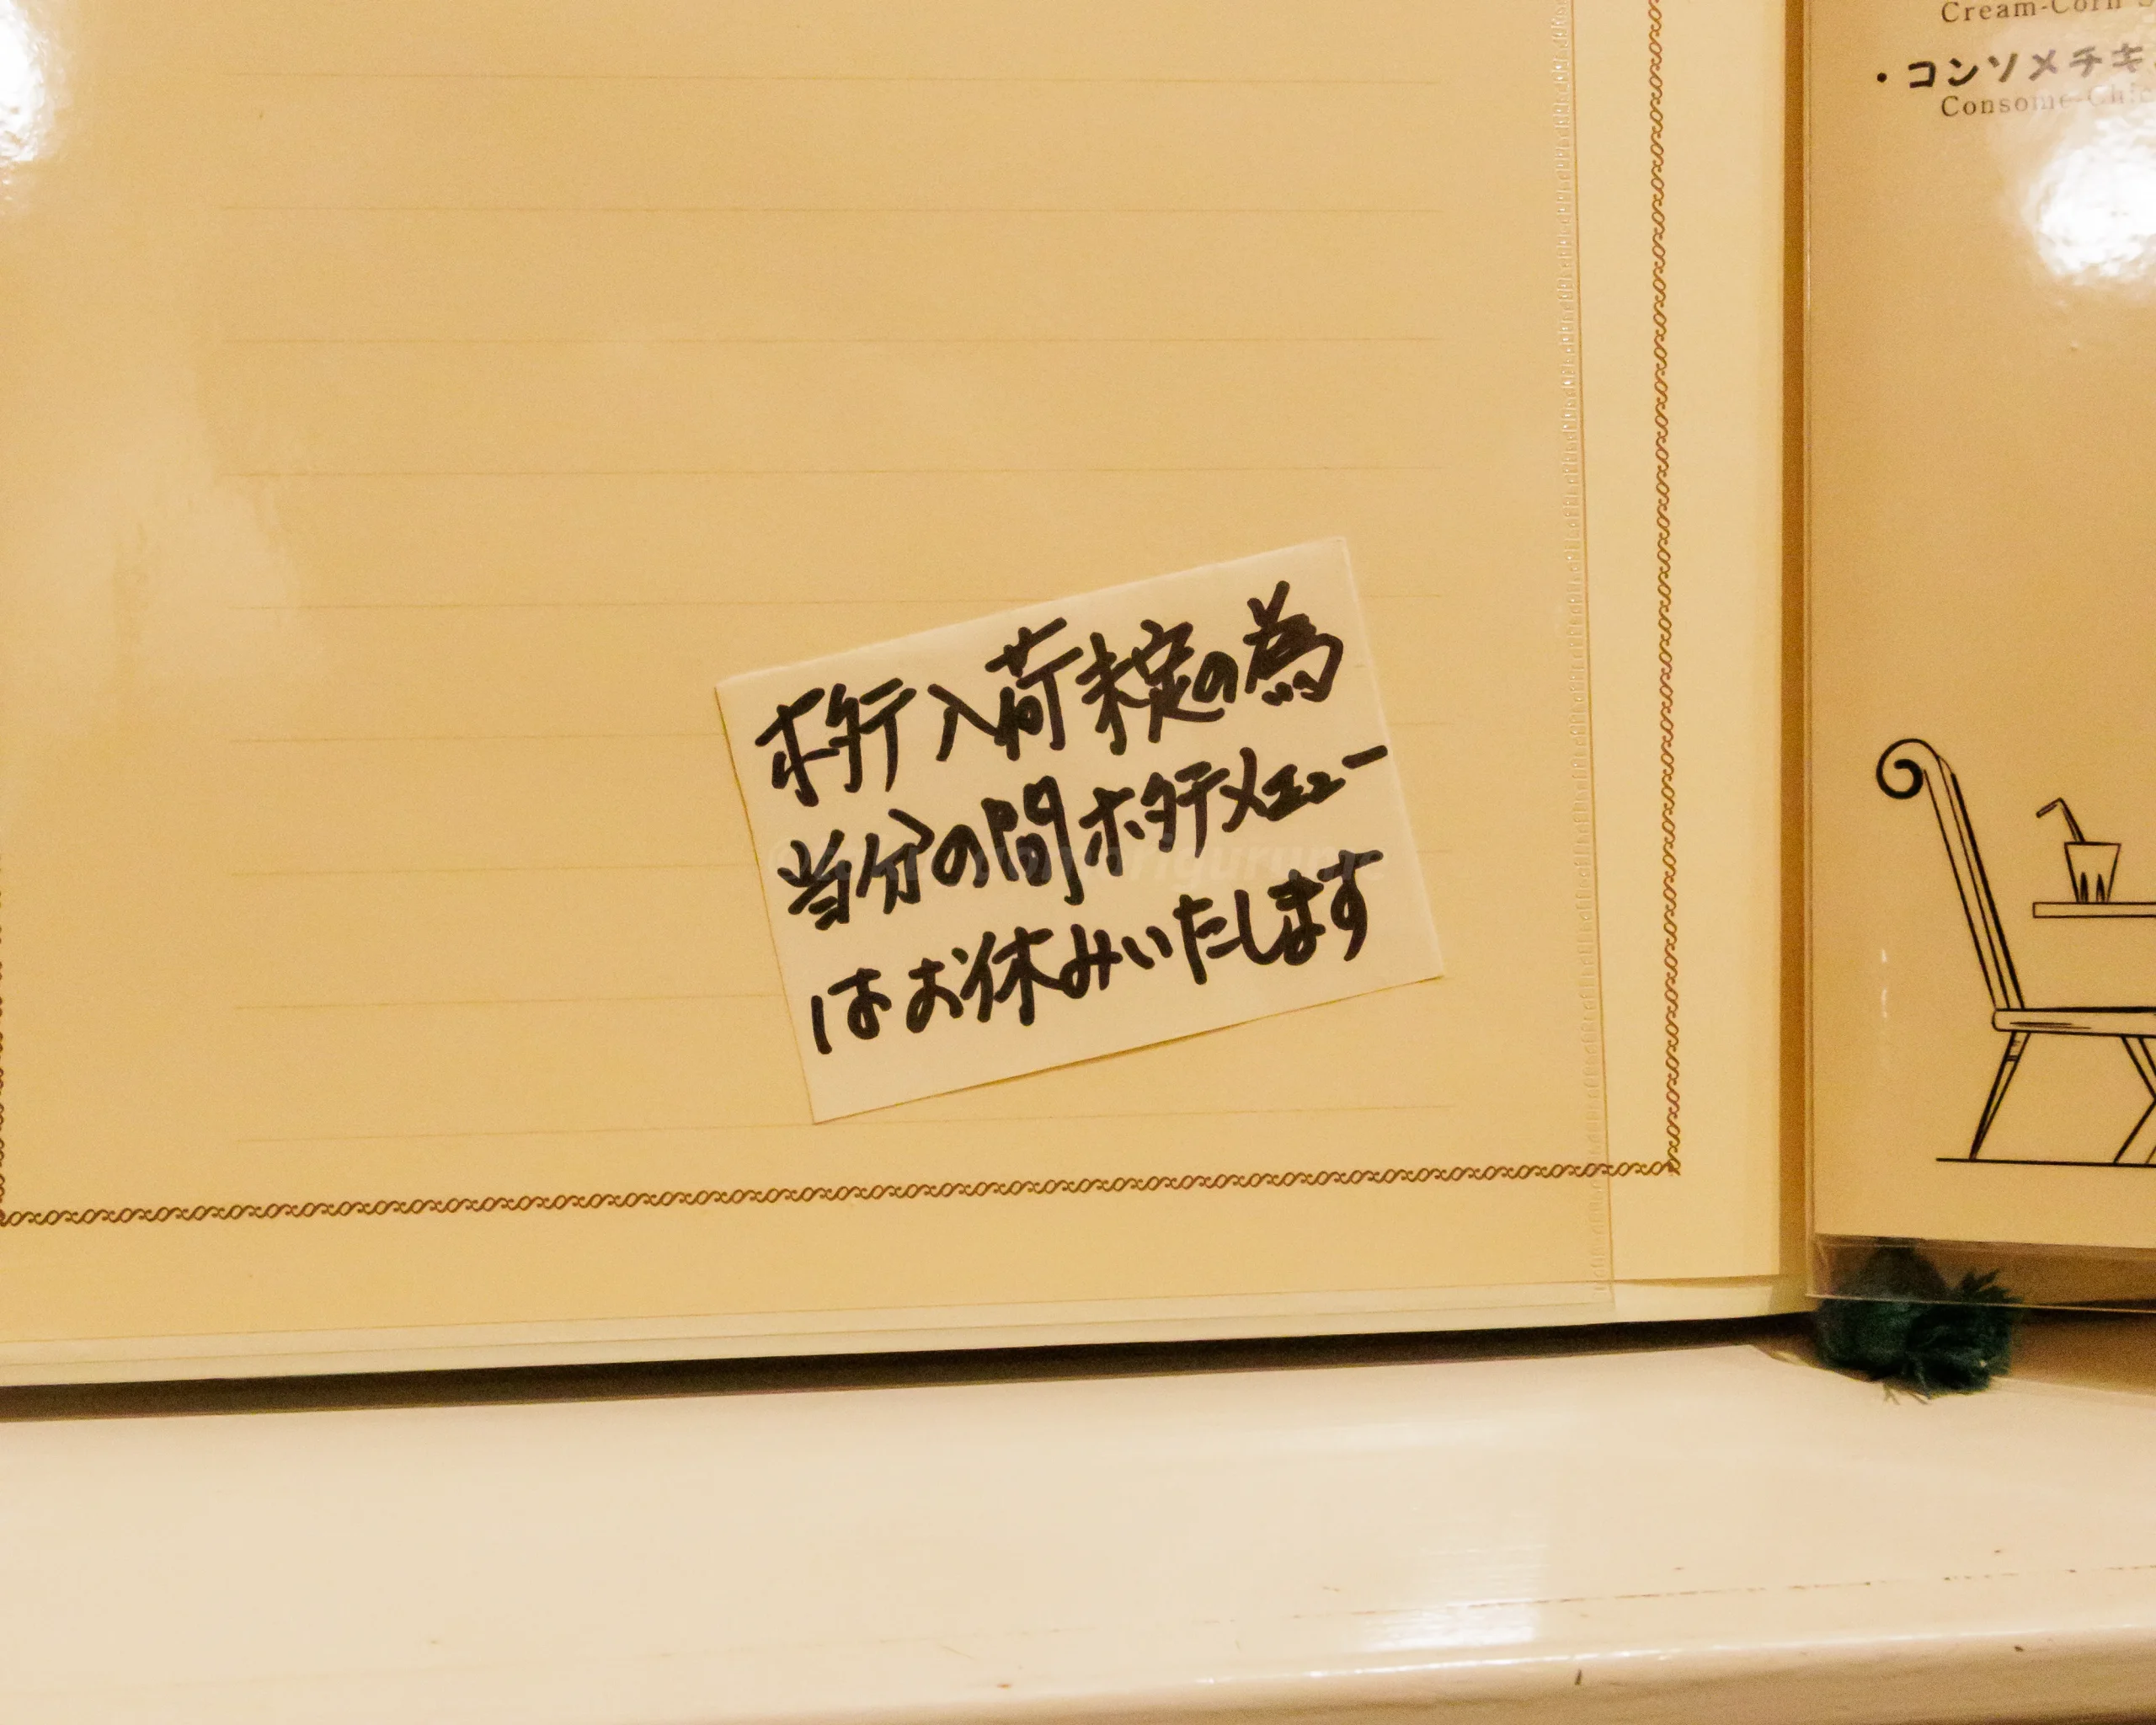 Cream-Corn
・コンソメチキ
Consome-Chic
ホタテ入荷未定の為
当分の間ホタテメニュー
はお休みいたします